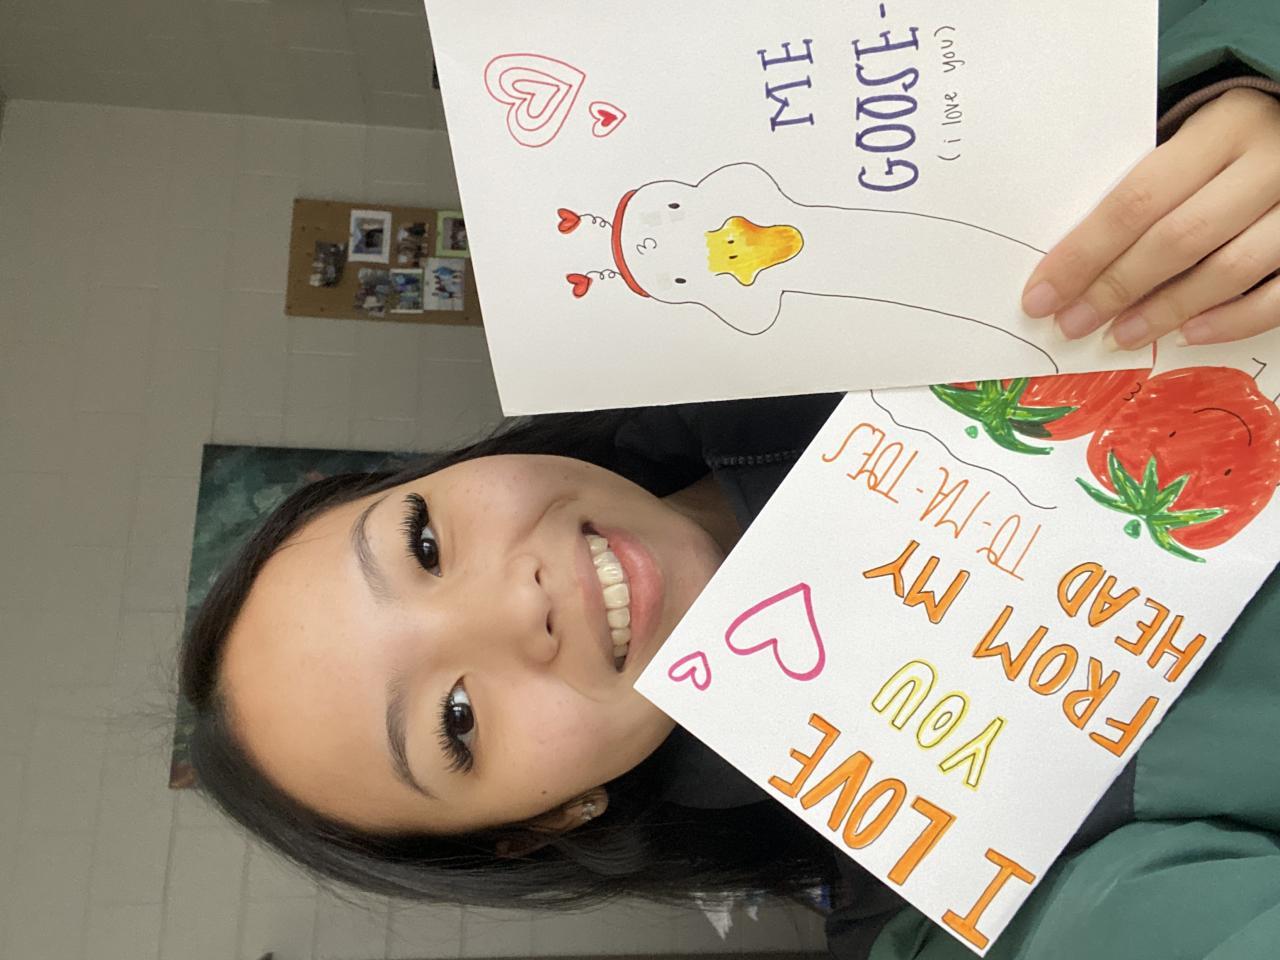 ME
GOOSE-
(i love you)
I LOVE
YOU
FROM MY
HEAD
TO-MA-TOES